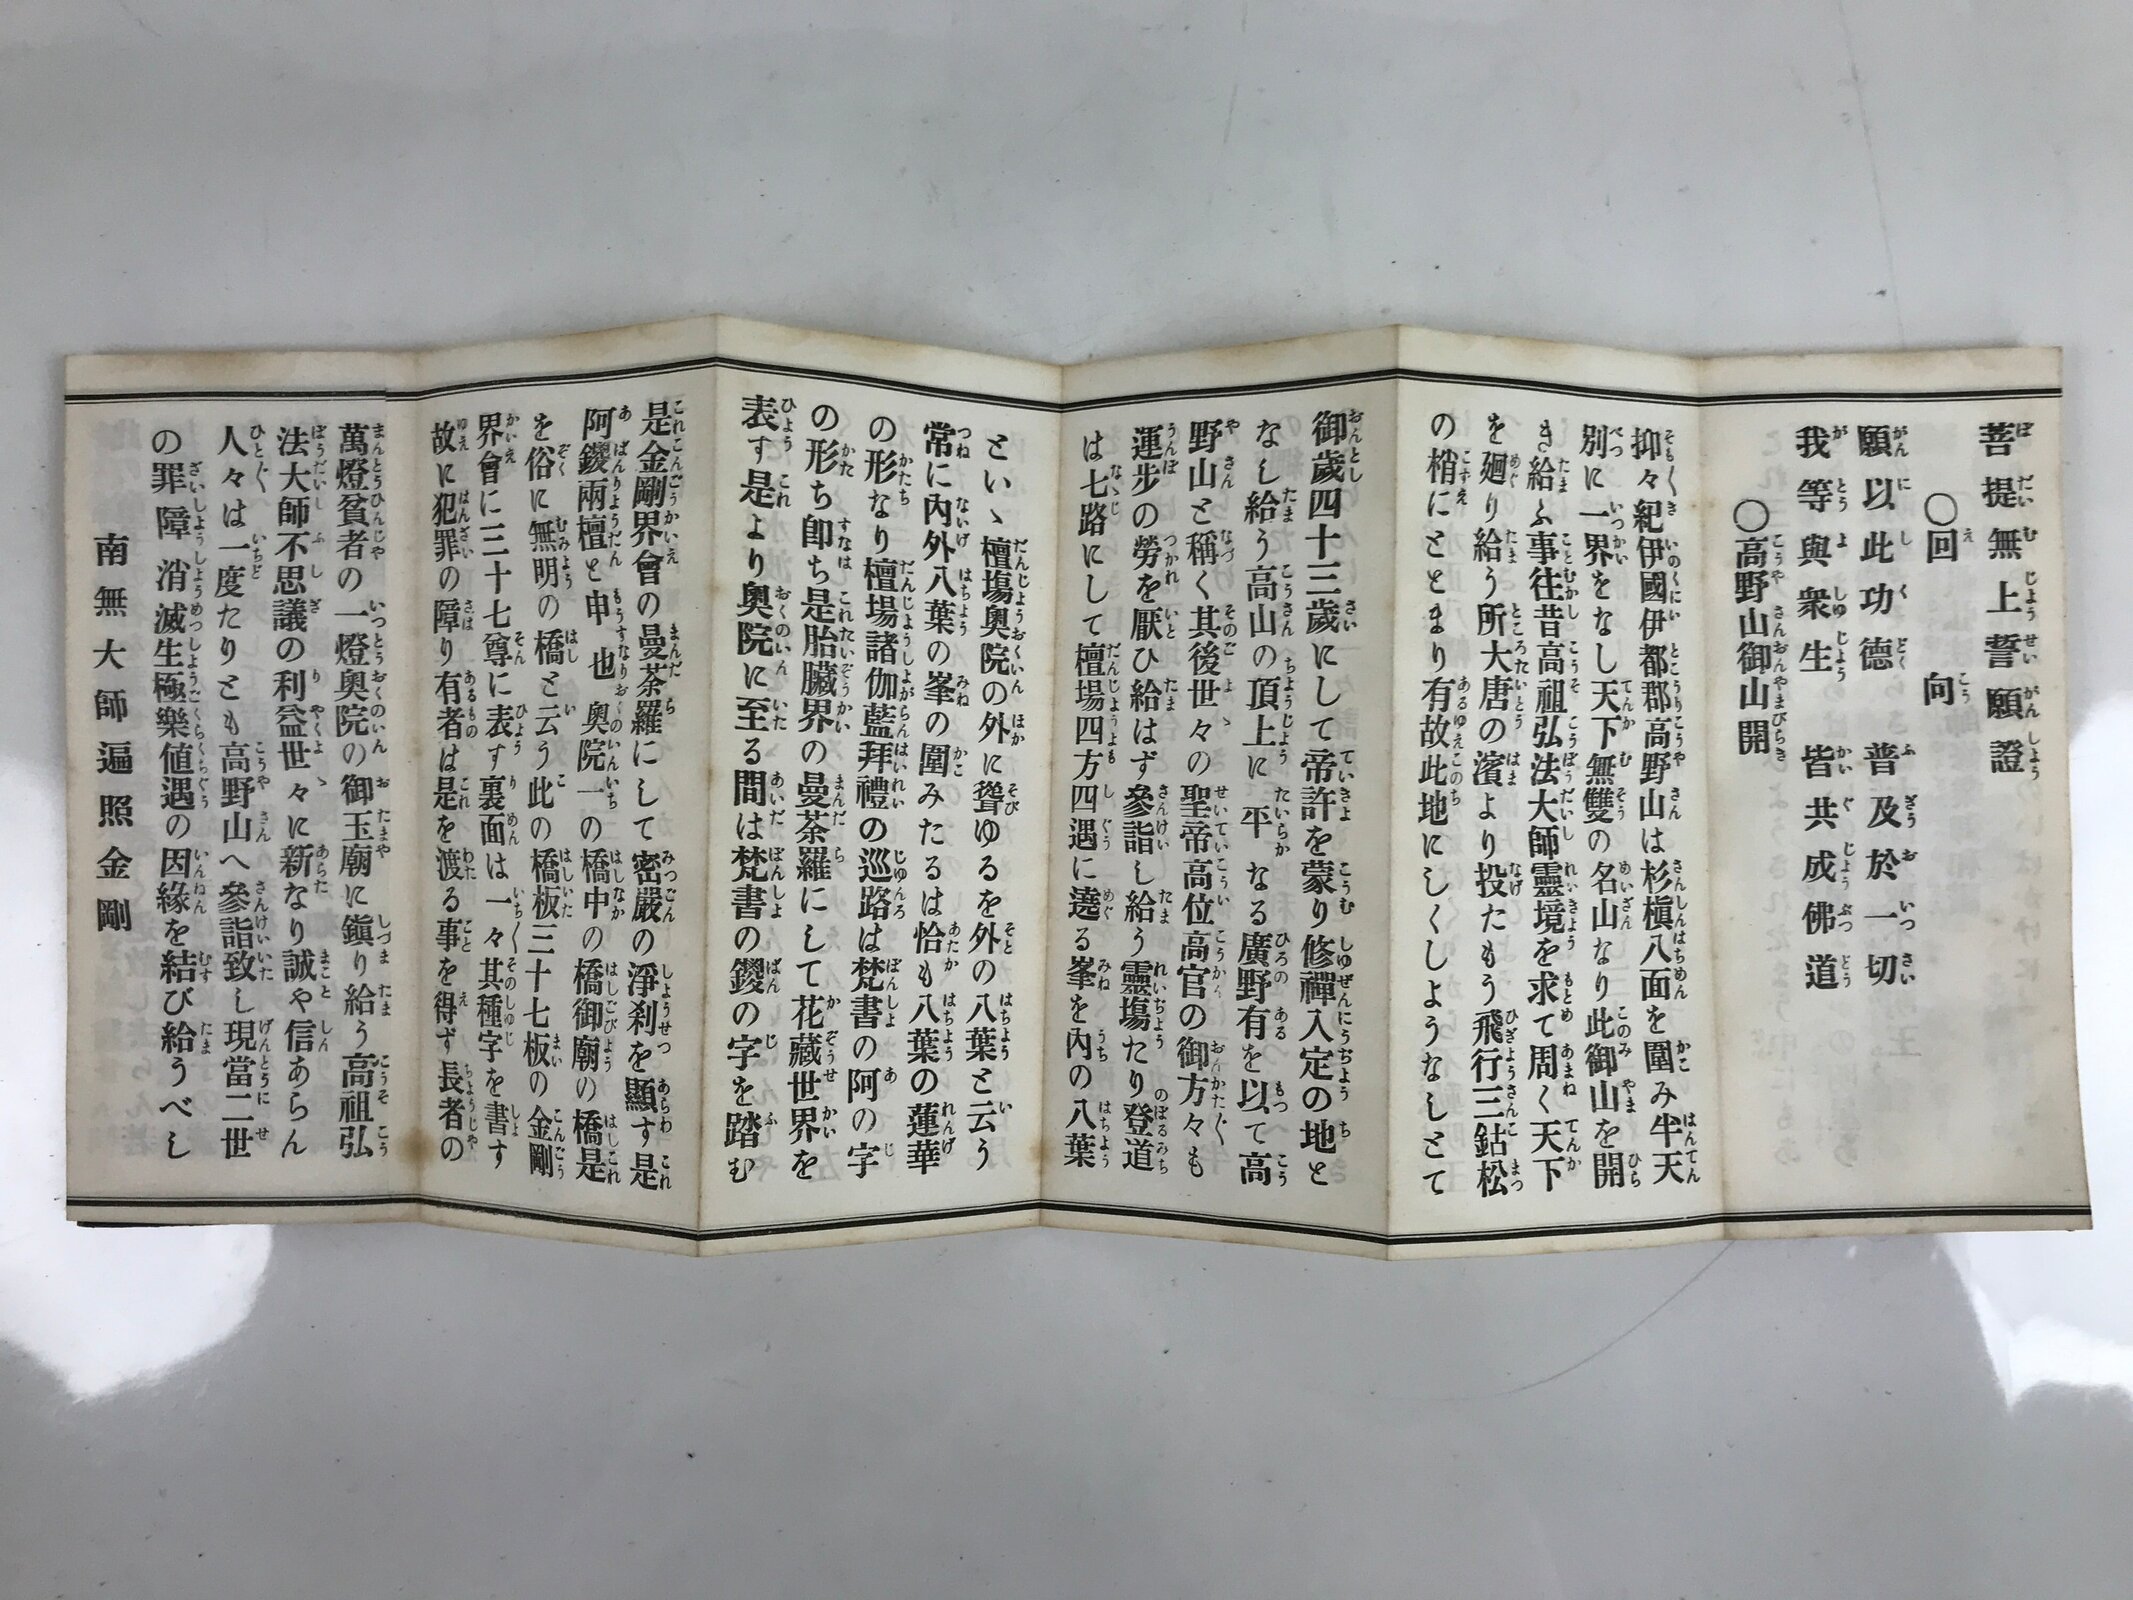 菩提無上誓願證
〇回向
願以此功德　普及於一切
我等與衆生　皆共成佛道
〇高野山御山開
抑々紀伊國伊都郡高野山は杉槇八面を圍み半天
別に一界をなし天下無雙の名山なり此御山を開
き給ふ事往昔高祖弘法大師靈境を求て周く天下
を廻り給う所大唐の濱より投たもう飛行三鈷松
の梢にとまり有故此地にしくしようなしとて
御歲四十三歲にして帝許を蒙り修禪入定の地と
なし給う高山の頂上に平なる廣野有を以て高
野山と稱く其後世々の聖帝高位高官の御方々も
運步の勞を厭ひ給はず參詣し給う靈塲たり登道
は七路にして檀場四方四遇に遶る峯を內の八葉
といゝ檀塲奧院の外に聳ゆるを外の八葉と云う
常に內外八葉の峯の圍みたるは恰も八葉の蓮華
の形なり檀塲諸伽藍拜禮の巡路は梵書の阿の字
の形ち卽ち是胎臟界の曼荼羅にして花藏世界を
表す是より奧院に至る間は梵書の鑁の字を踏む
是金剛界會の曼荼羅にして密嚴の淨刹を顯す是
阿鑁兩檀と申也奧院一の橋中の橋御廟の橋是
を俗に無明の橋と云う此の橋板三十七板の金剛
界會に三十七尊に表す裏面は一々其種字を書す
故に犯罪の障り有者は是を渡る事を得ず長者の
萬燈貧者の一燈奧院の御玉廟に鎭り給う高祖弘
法大師不思議の利益世々に新なり誠や信あらん
人々は一度たりとも高野山へ參詣致し現當二世
の罪障消滅生極樂値遇の因緣を結び給うべし
南無大師遍照金剛